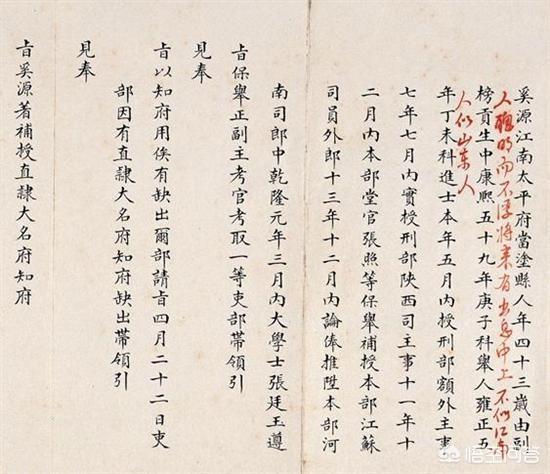 奚源江南太平府當塗縣人年四十三歲由副
人聰明而不浮將來有出息中上不似江南
榜貢生中康熙五十九年庚子科舉人雍正五
人似山東人
年丁未科進士本年五月內授刑部額外主事
七年七月內實授刑部陝西司主事十一年十
二月內本部堂官張照等保舉補授本部江蘇
司員外郎十三年十二月內論俸推陞本部河
南司郎中乾隆元年三月內大學士張廷玉遵
旨保舉正副主考官考取一等吏部帶領引
見奉
旨以知府用俟有缺出爾部請旨四月二十二日吏
部因有直隸大名府知府缺出帶領引
見奉
旨奚源著補授直隸大名府知府
悟空问答